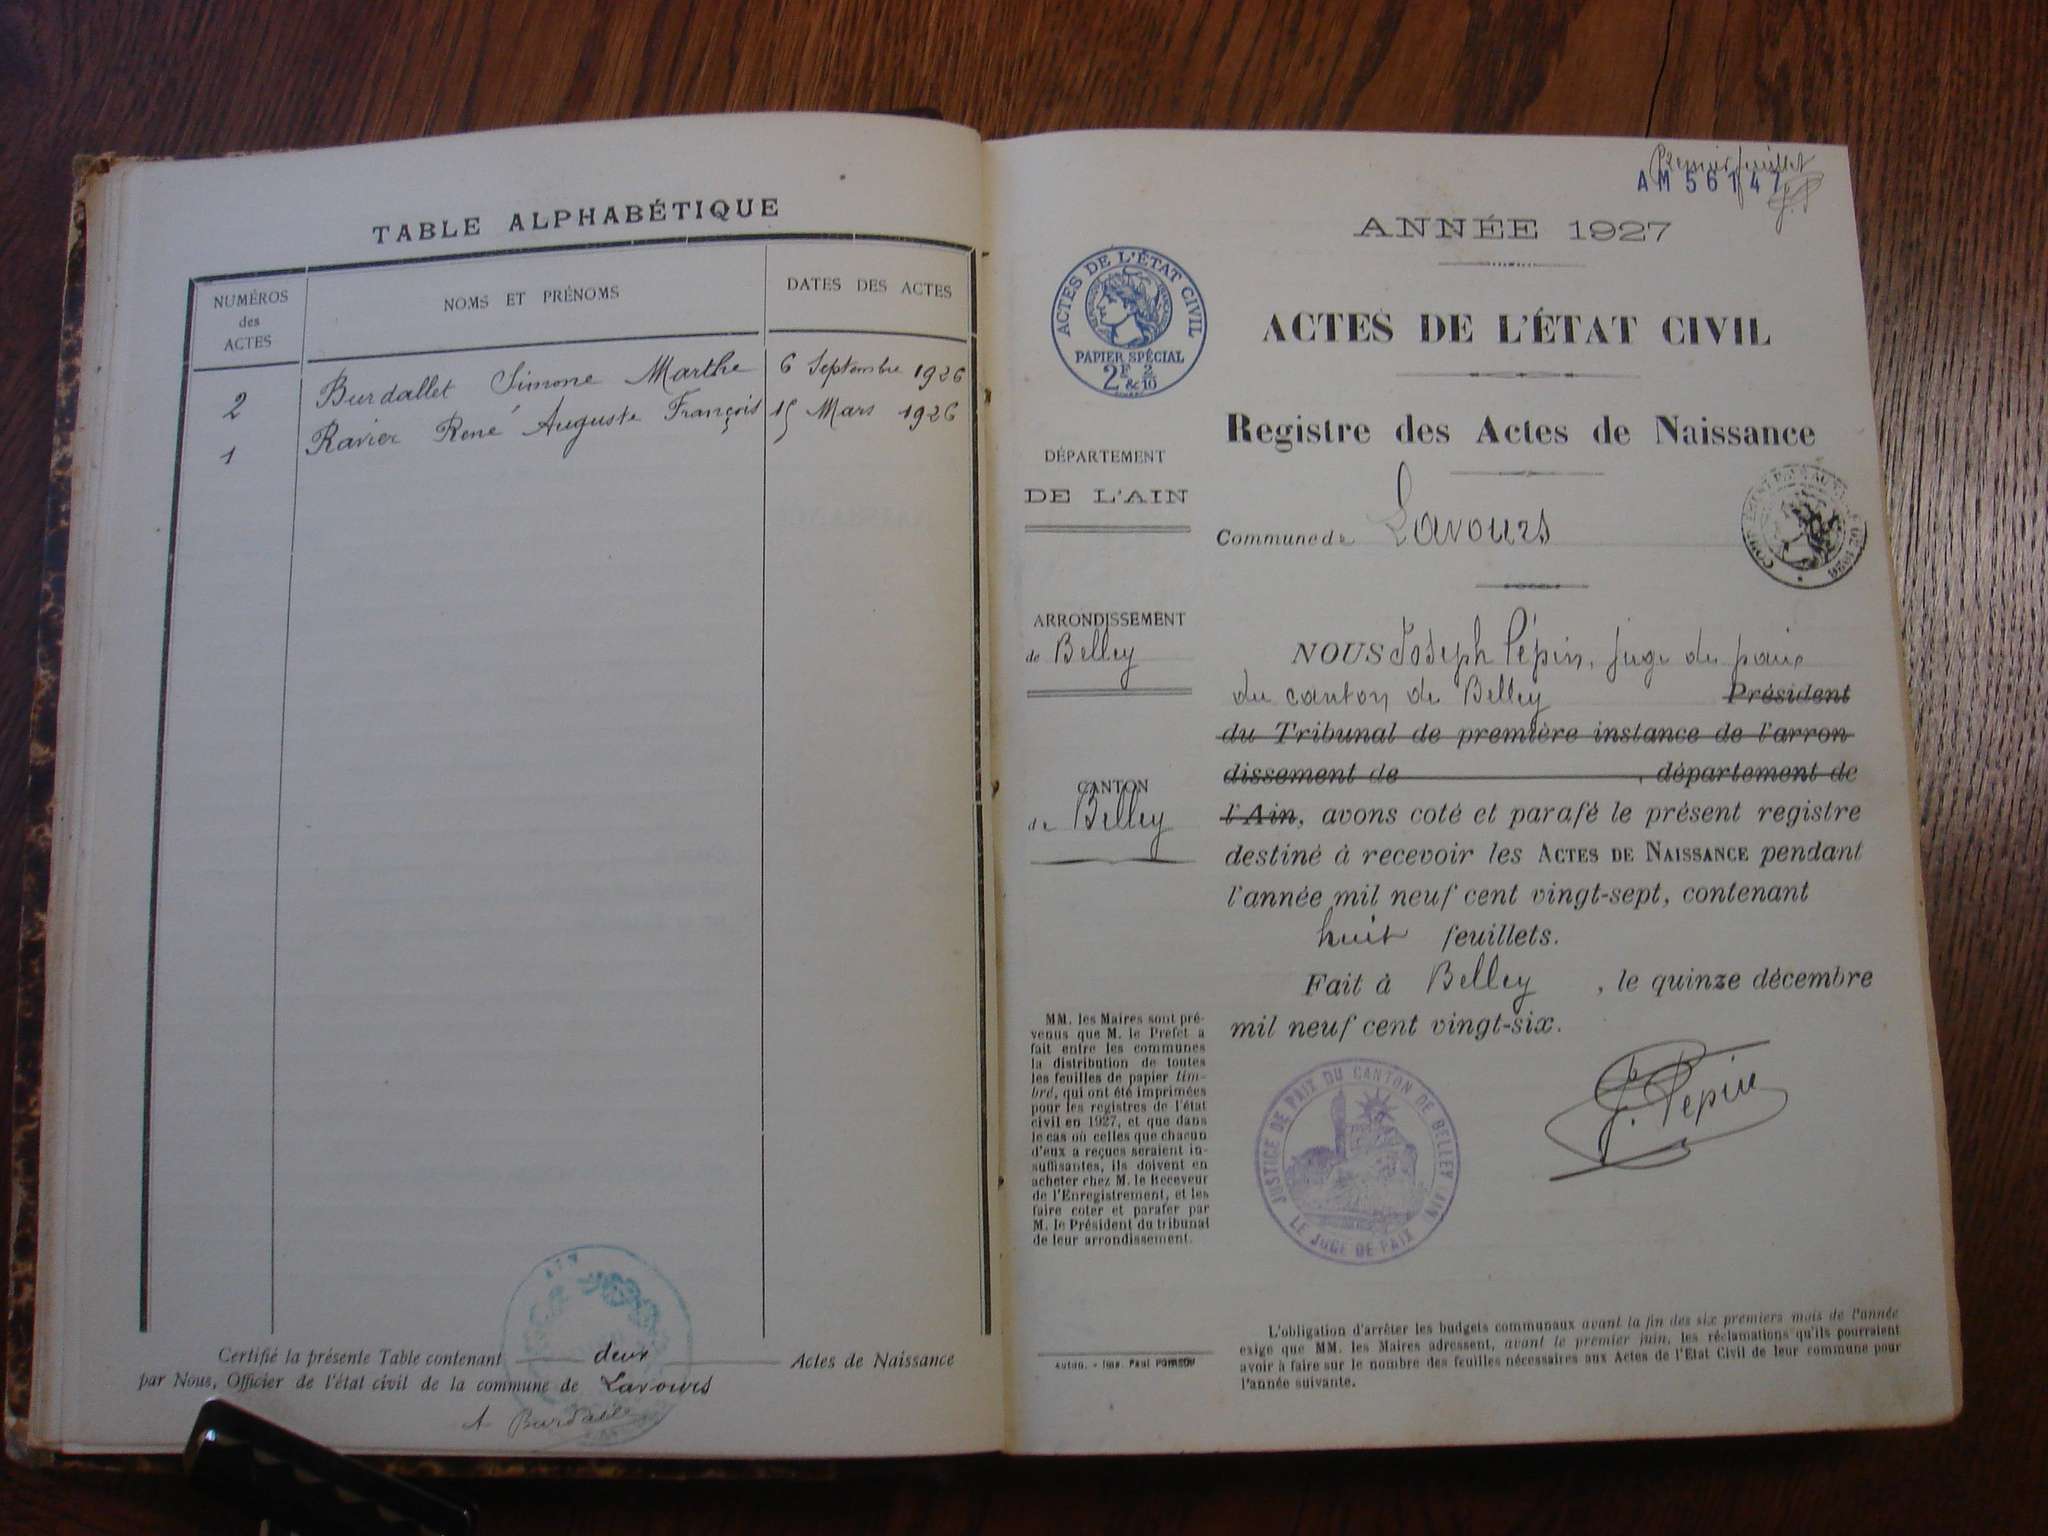 TABLE ALPHABÉTIQUE
NUMÉROS
des
ACTES
NOMS ET PRÉNOMS
DATES DES ACTES
2 Burdallet Simone Marthe 6 Septembre 1926
1 Ravier René Auguste François 15 Mars 1926
Certifié la présente Table contenant deux Actes de Naissance
par Nous, Officier de l'état civil de la commune de Lavours
A
AIN
Premier feuillet
AM 56147
ANNÉE 1927
ACTES DE L'ÉTAT CIVIL
PAPIER SPÉCIAL
2F 2/10
&
ACTES DE L'ÉTAT CIVIL
Registre des Actes de Naissance
DÉPARTEMENT
DE L'AIN
Commune de Lavours
ARRONDISSEMENT
de Belley
CANTON
de Belley
NOUS Joseph Pépin, juge de paix
du canton de Belley Président
du Tribunal de première instance de l'arron
dissement de , département de
l'Ain, avons coté et parafé le présent registre
destiné à recevoir les ACTES DE NAISSANCE pendant
l'année mil neuf cent vingt-sept, contenant
huit feuillets.
Fait à Belley , le quinze décembre
mil neuf cent vingt-six.
J. Pepin
JUSTICE DE PAIX DU CANTON DE BELLEY (AIN)
LE JUGE DE PAIX
MM. les Maires sont pré-
venus que M. le Prefet a
fait entre les communes
la distribution de toutes
les feuilles de papier tim-
bré, qui ont été imprimées
pour les registres de l'état
civil en 1927, et que dans
le cas où celles que chacun
d'eux a reçues seraient in-
suffisantes, ils doivent en
acheter chez M. le Receveur
de l'Enregistrement, et les
faire coter et parafer par
M. le Président du tribunal
de leur arrondissement.
Autun. - Imp. Paul
L'obligation d'arrêter les budgets communaux avant la fin des six premiers mois de l'année
exige que MM. les Maires adressent, avant le premier juin, les réclamations qu'ils pourraient
avoir à faire sur le nombre des feuilles nécessaires aux Actes de l'Etat Civil de leur commune pour
l'année suivante.